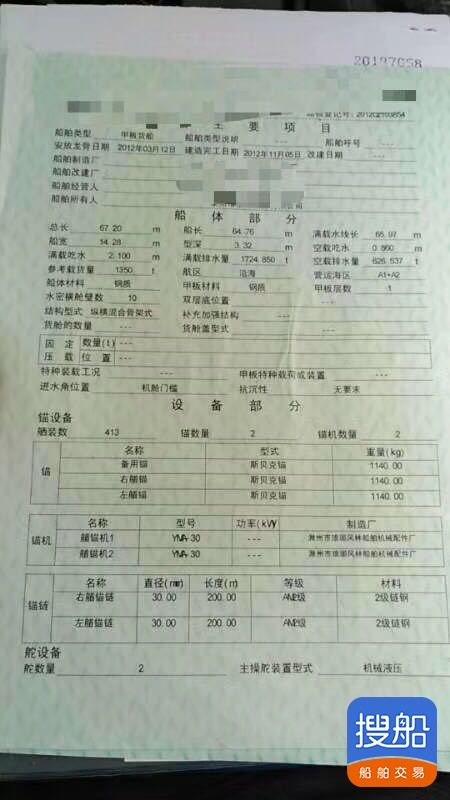 20197058
登记号: 2012C2100854
主 要 项 目
船舶类型 甲板货船 船舶类型说明 --- 船舶呼号 ---
安放龙骨日期 2012年03月12日 建造完工日期 2012年11月05日 改建日期 ---
船舶制造厂
船舶改建厂
船舶经营人
船舶所有人
船 体 部 分
总长 67.20 m 船长 64.76 m 满载水线长 65.97 m
船宽 14.28 m 型深 3.32 m 空载吃水 0.860 m
满载吃水 2.100 m 满载排水量 1724.850 t 空载排水量 626.537 t
参考载货量 1350 t 航区 沿海 营运海区 A1+A2
船体材料 钢质 甲板材料 钢质 甲板层数 1
水密横舱壁数 10 双层底位置 ---
结构型式 纵横混合骨架式 补充加强结构 ---
货舱的数量 --- 货舱盖型式 ---
固定压载 数量(t) ---
位置 ---
特种装载工况 --- 甲板特种载荷或装置 ---
进水角位置 机舱门槛 抗沉性 无要求
设 备 部 分
锚设备
舾装数 413 锚数量 2 锚机数量 2
锚 名称 型式 重量(kg)
备用锚 斯贝克锚 1140.00
右艏锚 斯贝克锚 1140.00
左艏锚 斯贝克锚 1140.00
锚机 名称 型号 功率(kW) 制造厂
艏锚机1 YMA-30 --- 滁州市琅琊风林船舶机械配件厂
艏锚机2 YMA-30 --- 滁州市琅琊风林船舶机械配件厂
锚链 名称 直径(mm) 长度(m) 等级 材料
右艏锚链 30.00 200.00 AM2级 2级链钢
左艏锚链 30.00 200.00 AM2级 2级链钢
舵设备
舵数量 2 主操舵装置型式 机械液压
搜船
船舶交易